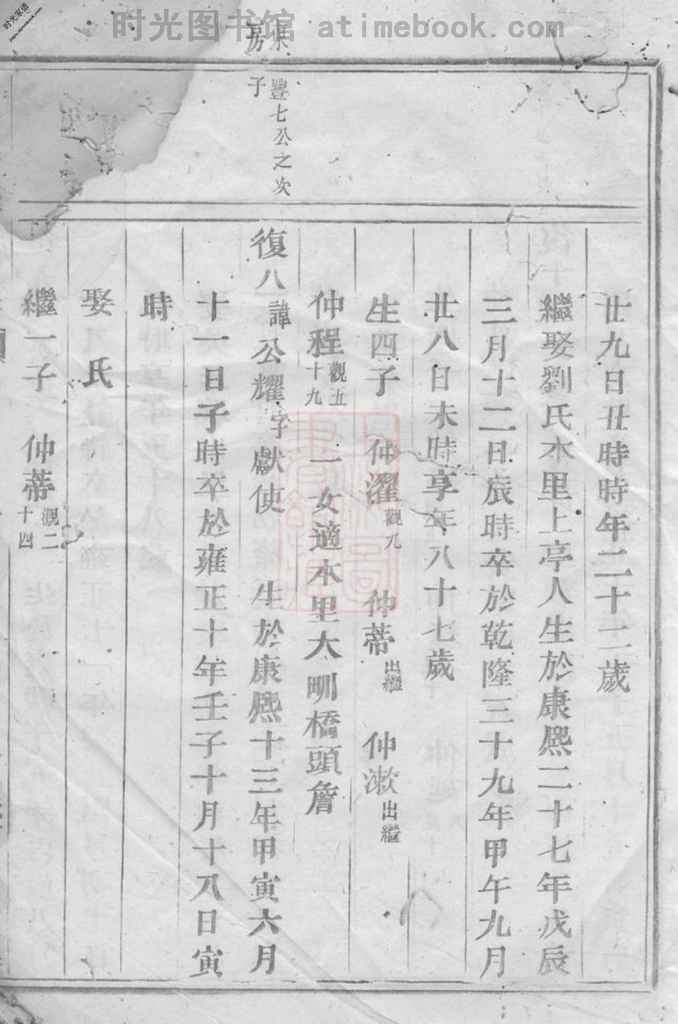 时光图书馆 atimebook.com
时光家谱
豐七公之次
房 子
廿九日丑時時年二十二歲
繼娶劉氏本里上亭人生於康熙二十七年戊辰
三月十二日辰時卒於乾隆三十九年甲午九月
廿八日未時享年八十七歲
生四子 仲濯觀九 仲蒂出繼 仲漱出繼
仲程觀五十九 一女適本里大嘞橋頭詹
復八諱公耀字獻使 生於康熙十三年甲寅六月
十一日子時卒於雍正十年壬子十月十八日寅
時
娶 氏
繼一子 仲蒂觀二十四